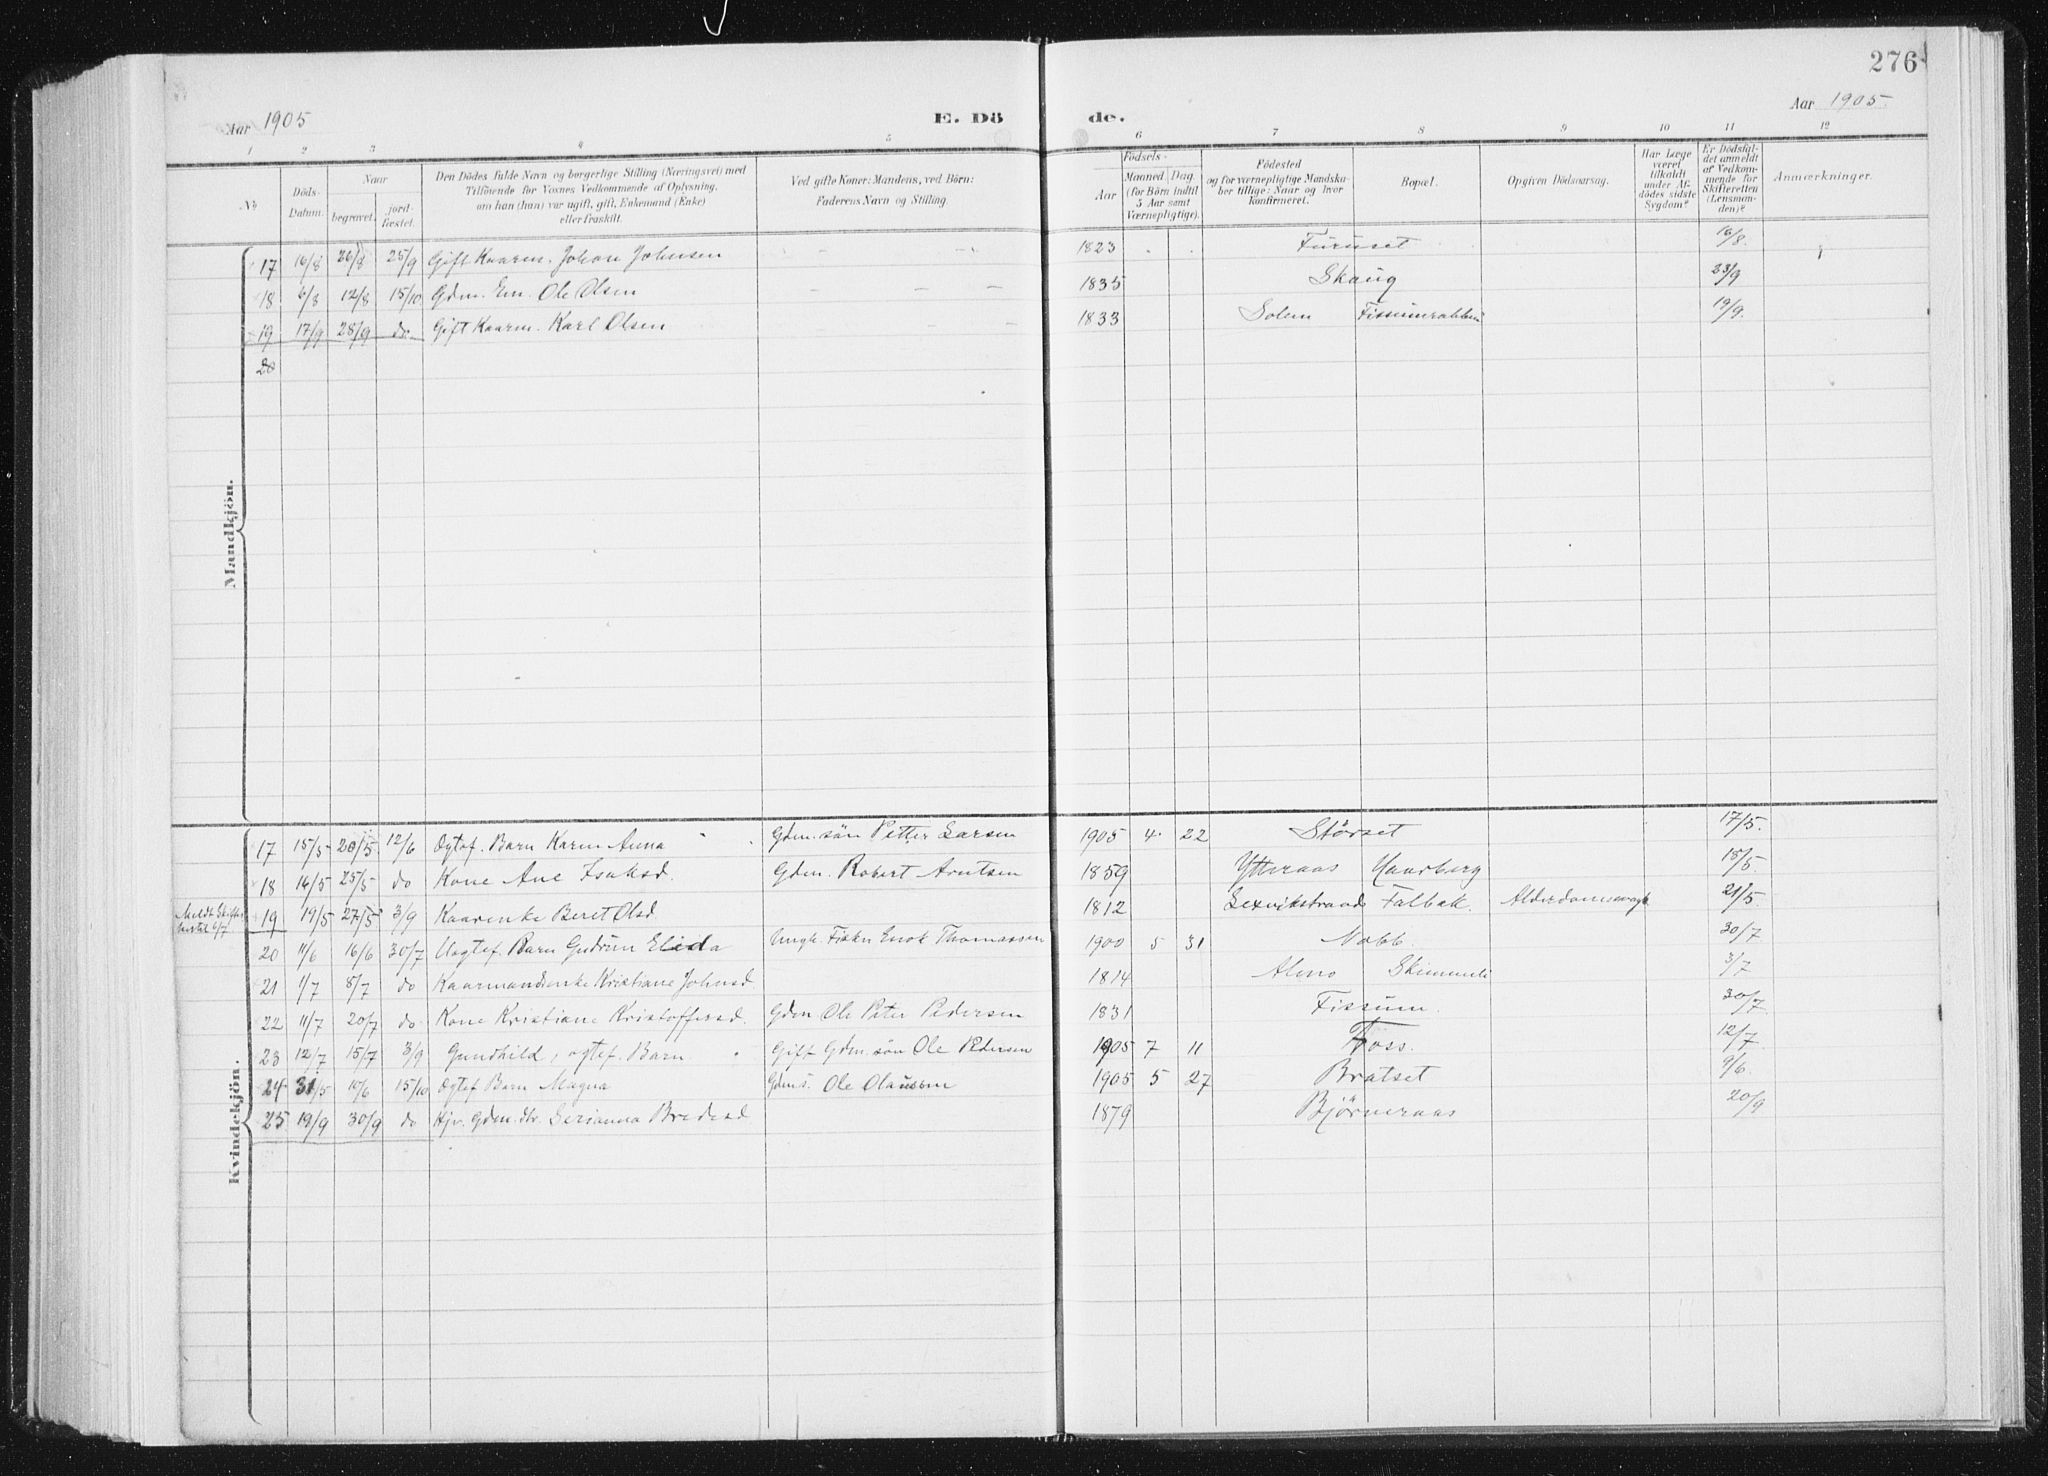 276
Aar 1905
E. Dö
de.
Aar 1905.
1 2 3 4 5 6 7 8 9 10 11 12
No
Döds-Datum.
Naar
begravet.
jord-fæstet.
Den Dödes fulde Navn og borgerlige Stilling (Næringsvei) med
Tilföiende for Voxnes Vedkommende af Oplysning,
om han (hun) var ugift, gift, Enkemand (Enke)
eller fraskilt.
Ved gifte Koner: Mandens, ved Börn:
Faderens Navn og Stilling.
Födsels-
Aar
Maaned. Dag.
(for Börn indtil
5 Aar samt
Værnepligtige).
Födested
og for værnepligtige Mandska-
ber tillige: Naar og hvor
konfirmeret.
Bopæl.
Opgiven Dödsaarsag.
Har Læge
været
tilkaldt
under Af-
dödes sidste
Sygdom?
Er Dödsfal-
det anmeldt
af Vedkom-
mende for
Skifteretten
(Lensman-
den)?
Anmærkninger.
Mandkjön.
17 16/8 26/8 25/9 Gift Kaarm. Johan Johnsen – – 1823 Furuset 16/8.
18 6/8 12/8 15/10 Gdm. Em. Ole Olsen – – – 1835 Skaug 23/9
19 17/9 28/9 do. Gift Kaarm. Karl Olsen – – – 1833 Solem Fissumrabben 19/9.
20
Kvindekjön.
17 15/5 20/5 12/6 Ægtef. Barn Karen Anna Gdm. sön Petter Larsen 1905 4. 22 Störset 17/5.
18 14/5 25/5 do Kone Ane Isaksd. Gdm. Robert Arntsen 1859 Ytteraas Haarberg 18/5.
19 19/5 27/5 3/9 Kaarenke Beret Olsd 1812 Lexvikstrand Falbak. 21/5.
20 11/6 16/6 30/7 Uægtef. Barn Gudrun Elida Ungk. Fisker Enok Thomassen 1900 5 31 Nabb. 30/7
21 1/7 8/7 do Kaarmandsenke Kristiane Johnsd. 1814 Almo 3/7
22 11/7 20/7 do. Kone Kristiane Kristoffersd. Gdm Ole Peter Pedersen 1831 Fissum. 30/7.
23 12/7 15/7 3/9 Gundhild, ægtef. Barn Gift Gdm. sön Ole Pedersen 1905 7 11 Foss. 12/7
24 31/5 10/6 15/10 Ægtef Barn Magna Gdms. Ole Olaussen 1905 5 27 Bratset 9/6.
25 19/9 30/9 do Hjv. Gdm. dtr. Serianna Bredesd 1879 Bjørneraas 20/9